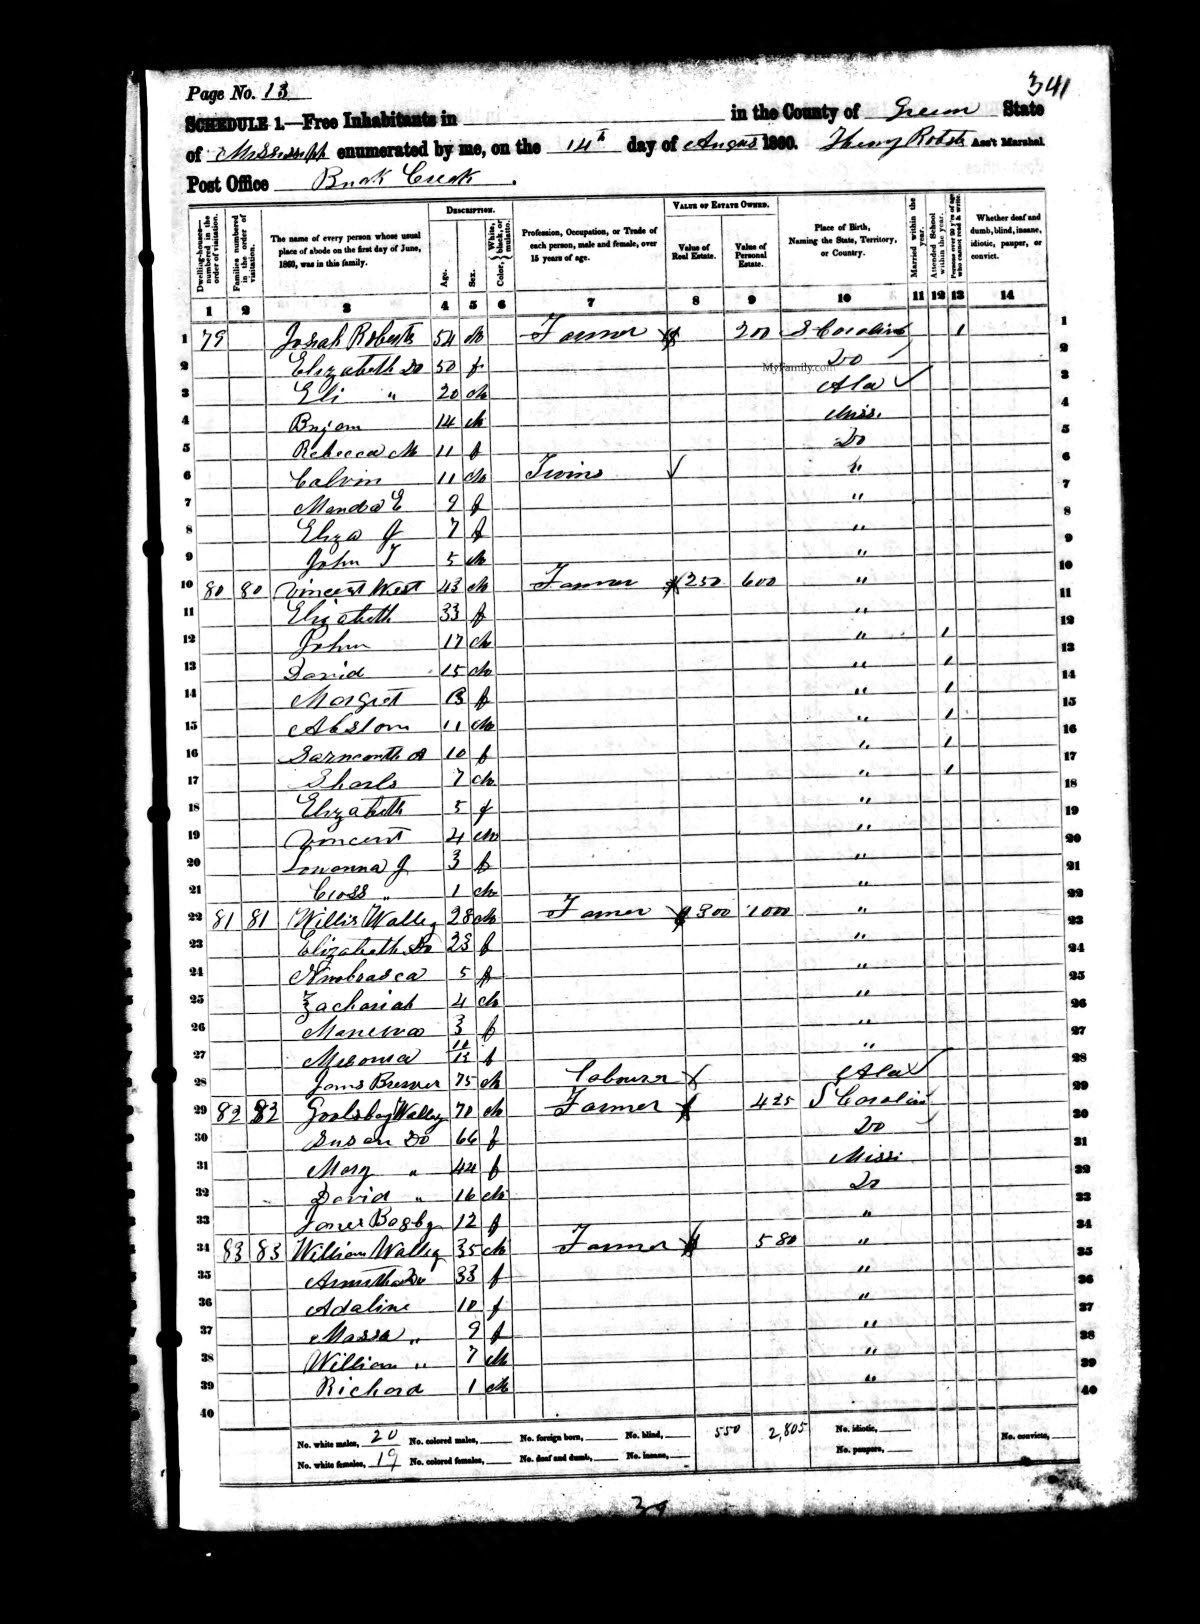 341
Page No. 13
SCHEDULE 1.—Free Inhabitants in in the County of Green State
of Mississipp enumerated by me, on the 14th day of August 1860. Henry Roberts Ass't Marshal
Post Office Buck Creek.
Dwelling-houses—numbered in the order of visitation.
Families numbered in the order of visitation.
The name of every person whose usual place of abode on the first day of June, 1860, was in this family.
DESCRIPTION.
Age.
Sex.
Color, White, black, or mulatto.
Profession, Occupation, or Trade of each person, male and female, over 15 years of age.
VALUE OF ESTATE OWNED.
Value of Real Estate.
Value of Personal Estate.
Place of Birth, Naming the State, Territory, or Country.
Married within the year.
Attended School within the year.
Persons over 20 y'rs of age who cannot read & write.
Whether deaf and dumb, blind, insane, idiotic, pauper, or convict.
1 2 3 4 5 6 7 8 9 10 11 12 13 14
1 79 Josiah Roberts 54 m Farmer 200 S Carolina 1 1
2 Elizabeth Do 50 f Do 2
MyFamily.com
3 Eli " 20 m Ala 3
4 Benjam 14 m Miss. 4
5 Rebecca M 11 f Do 5
6 Calvin 11 m Twins " 6
7 Manda E 9 f " 7
8 Eliza J 7 f " 8
9 John T 5 m " 9
10 80 80 Vincent West 43 m Farmer 250 600 " 10
11 Elizabeth 33 f " 11
12 John 17 m " 1 12
13 David 15 m " 1 13
14 Margret 13 f " 1 14
15 Abslom 11 m " 1 15
16 A 10 f " 1 16
17 Sharls 7 m " 1 17
18 Elizabeth 5 f " 18
19 Vincent 4 m " 19
20 Lowanna J 3 f " 20
21 Cross " 1 m " 21
22 81 81 Willis Walley 28 m Farmer 300 1000 " 22
23 Elizabeth Do 23 f " 23
24 Nwobrasca 5 f " 24
25 Zachariah 4 m " 25
26 Manerva 3 f " 26
27 Mesonia f " 27
28 Jams Brewer 75 m Labourer Ala 28
29 82 82 Goolsbay Walley 70 m Farmer 425 S Carolin 29
30 Susan Do 66 f Do 30
31 Mary " 44 f Missi 31
32 David " 16 m Do 32
33 Bagby 12 f " 33
34 83 83 William Walley 35 m Farmer 580 " 34
35 Do 33 f " 35
36 Adaline 10 f " 36
37 Massa " 9 f " 37
38 William " 7 m " 38
39 Richard 1 m " 39
40 40
No. white males, 20 No. colored males, No. foreign born, No. blind, 550 2,805 No. idiotic, No. convicts,
No. white females, 19 No. colored females, No. deaf and dumb, No. insane, No. paupers,